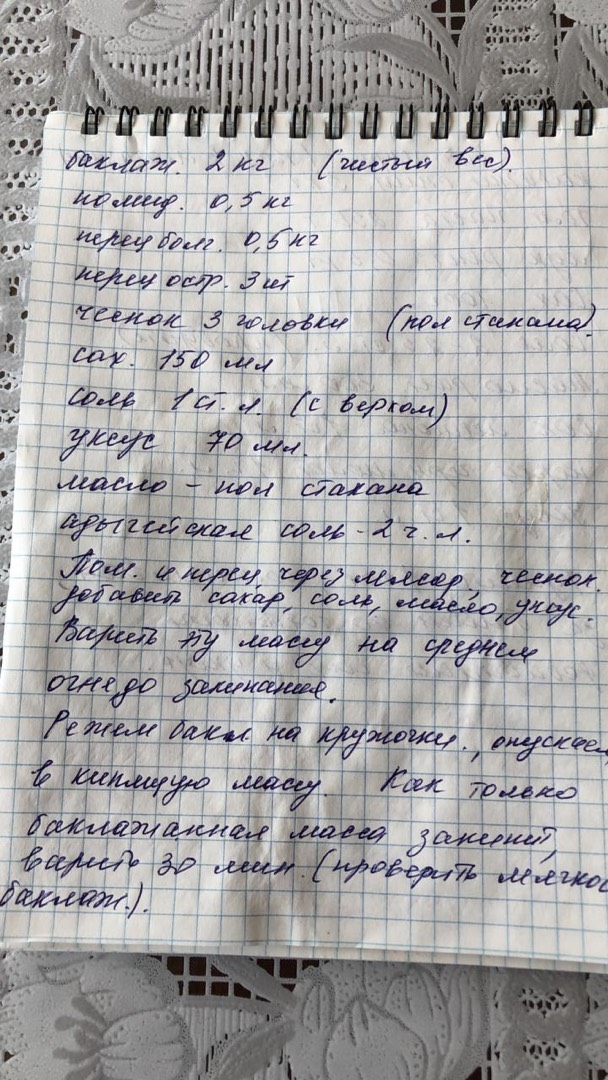 баклаж. 2 кг (чистый вес).
помид. 0,5 кг
перец болг. 0,5 кг
перец остр. 3 шт
чеснок 3 головки (пол стакана).
сах. 150 мл
соль 1 ст. л. (с верхом)
уксус 70 мл.
масло – пол стакана
адыгейская соль - 2 ч. л.
Пом. и перец через мясор, чеснок.
добавить сахар, соль, масло, уксус.
Варить эту массу на среднем
огне до закипания.
Режем бакл на кружочки., опускаем
в кипящую массу. Как только
баклажанная масса закипит,
варить 30 мин. (проверить мягкос
баклаж.).